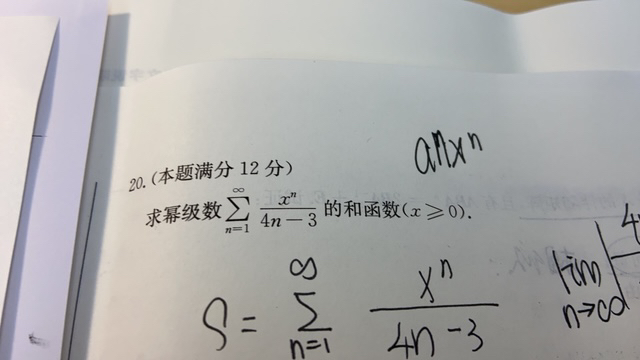 aⁿxⁿ
20.(本题满分 12 分)
求幂级数 ∑_{n=1}^{∞} xⁿ/(4n-3) 的和函数(x≥0).
S = ∑_{n=1}^{∞} xⁿ/(4n-3)
lim_{n→∞} | 4